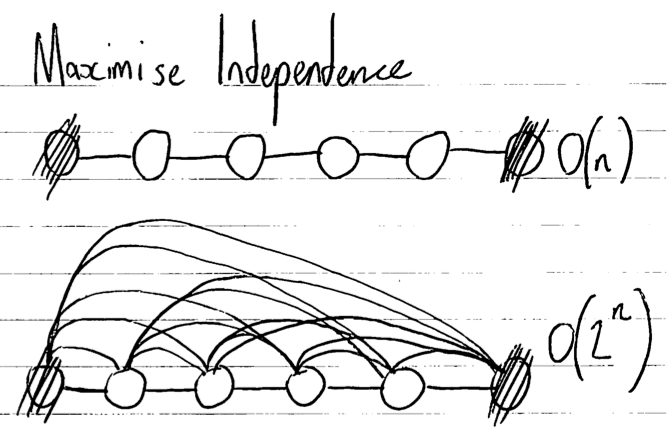 Maximise Independence
O(n)
O(2^n)